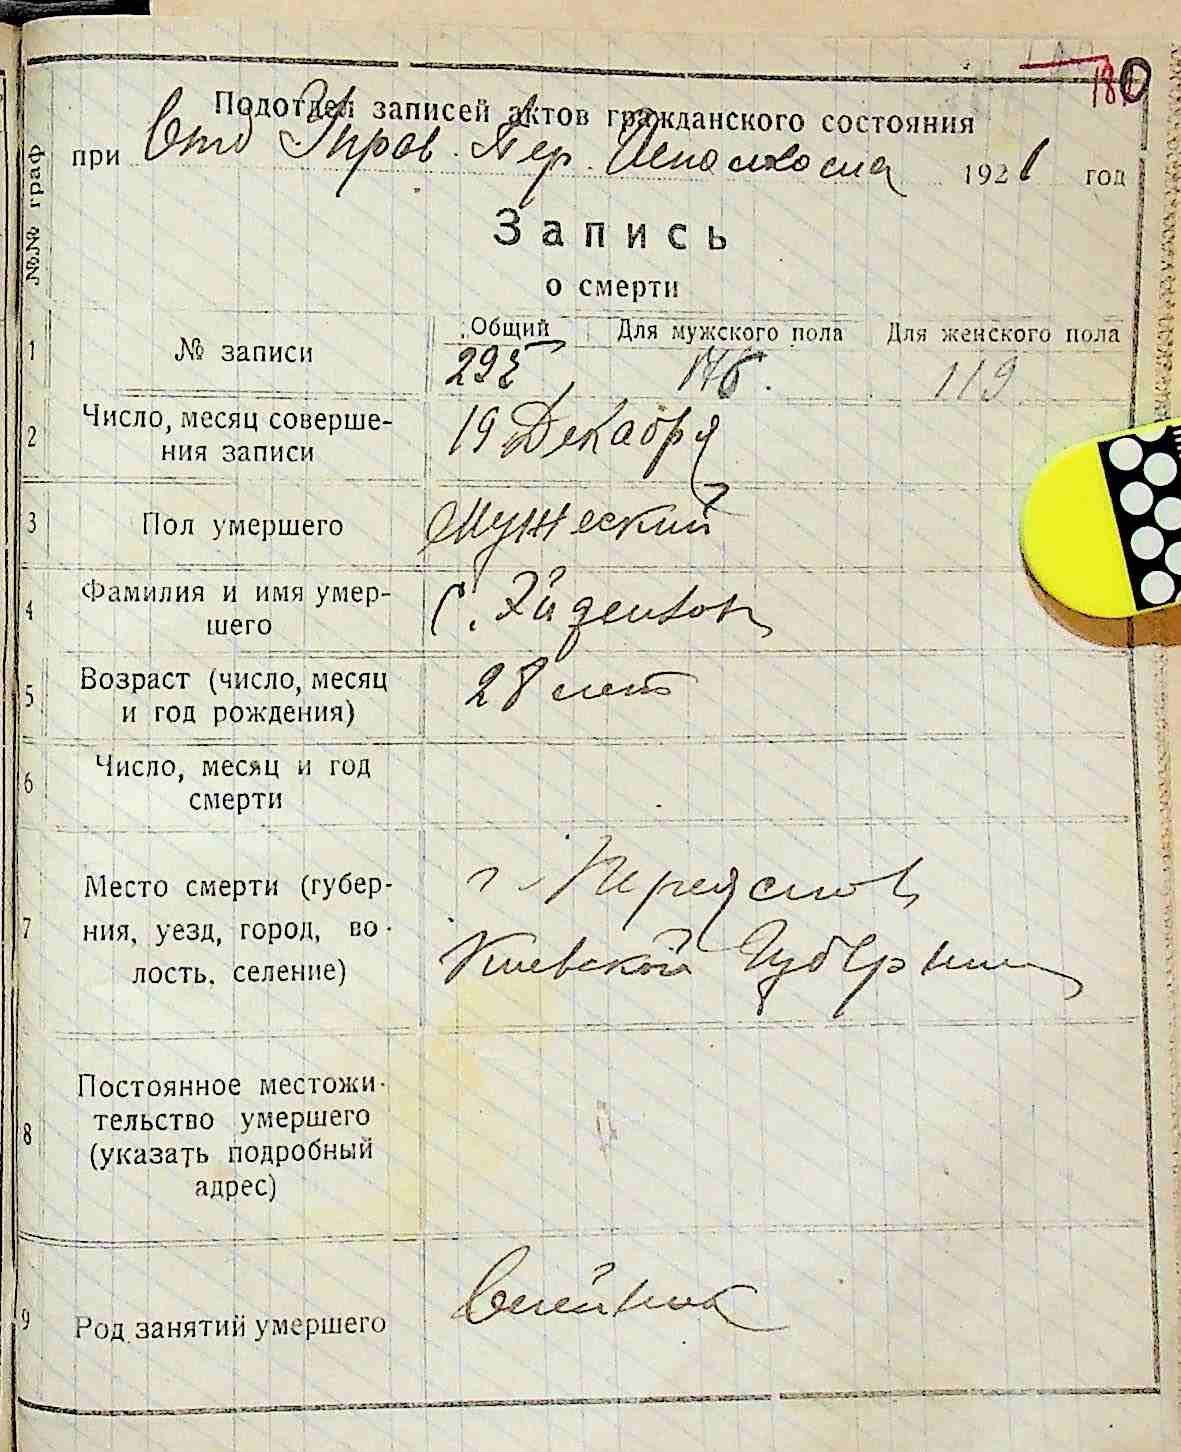 180
Подотдел записей актов гражданского состояния
при Отд Управ. Пер. Исполкома 1921 год
№№ граф
Запись
о смерти
1 № записи Общий Для мужского пола Для женского пола
295 176. 119
2 Число, месяц соверше-
ния записи
19 Декабря
3 Пол умершего Мужеский
4 Фамилия и имя умер-
шего
С.
5 Возраст (число, месяц
и год рождения)
28 лет
6 Число, месяц и год
смерти
7 Место смерти (губер-
ния, уезд, город, во-
лость, селение)
г. Переяслов
Киевской Губернии
8 Постоянное местожи-
тельство умершего
(указать подробный
адрес)
9 Род занятий умершего